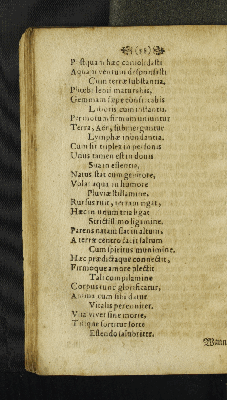 (56)
Postquam hæc consolidasti
Aquam ventum desponsasti
Cum terræ substantia,
Phœbi leni maturabis,
Gemmam sæpe
Laboris cum instantia.
Per motum firmum uniuntur
Terra, Aër, submerguntur
Lymphæ inundantia.
Cum sit triplex in personis
Unus tamen est in donis
Sua in essentia,
Natus stat cum genitore,
Volat aqua in humore
Pluviæ stillamine.
Rursus ruit, terram rigat,
Hæc in unum tria ligat
Strictissimo ligamine.
Parens natam stat in altum,
A terræ centro facit saltum
Cum spiritus munimine.
Hæc prædictaque connectit,
Firmoque amore plectit
Tali compilamine
Corpus tunc glorificatur,
Anima cum sibi datur
Vitalis perenniter.
Vita vivet sine morte,
forte
Essendo salubriter.